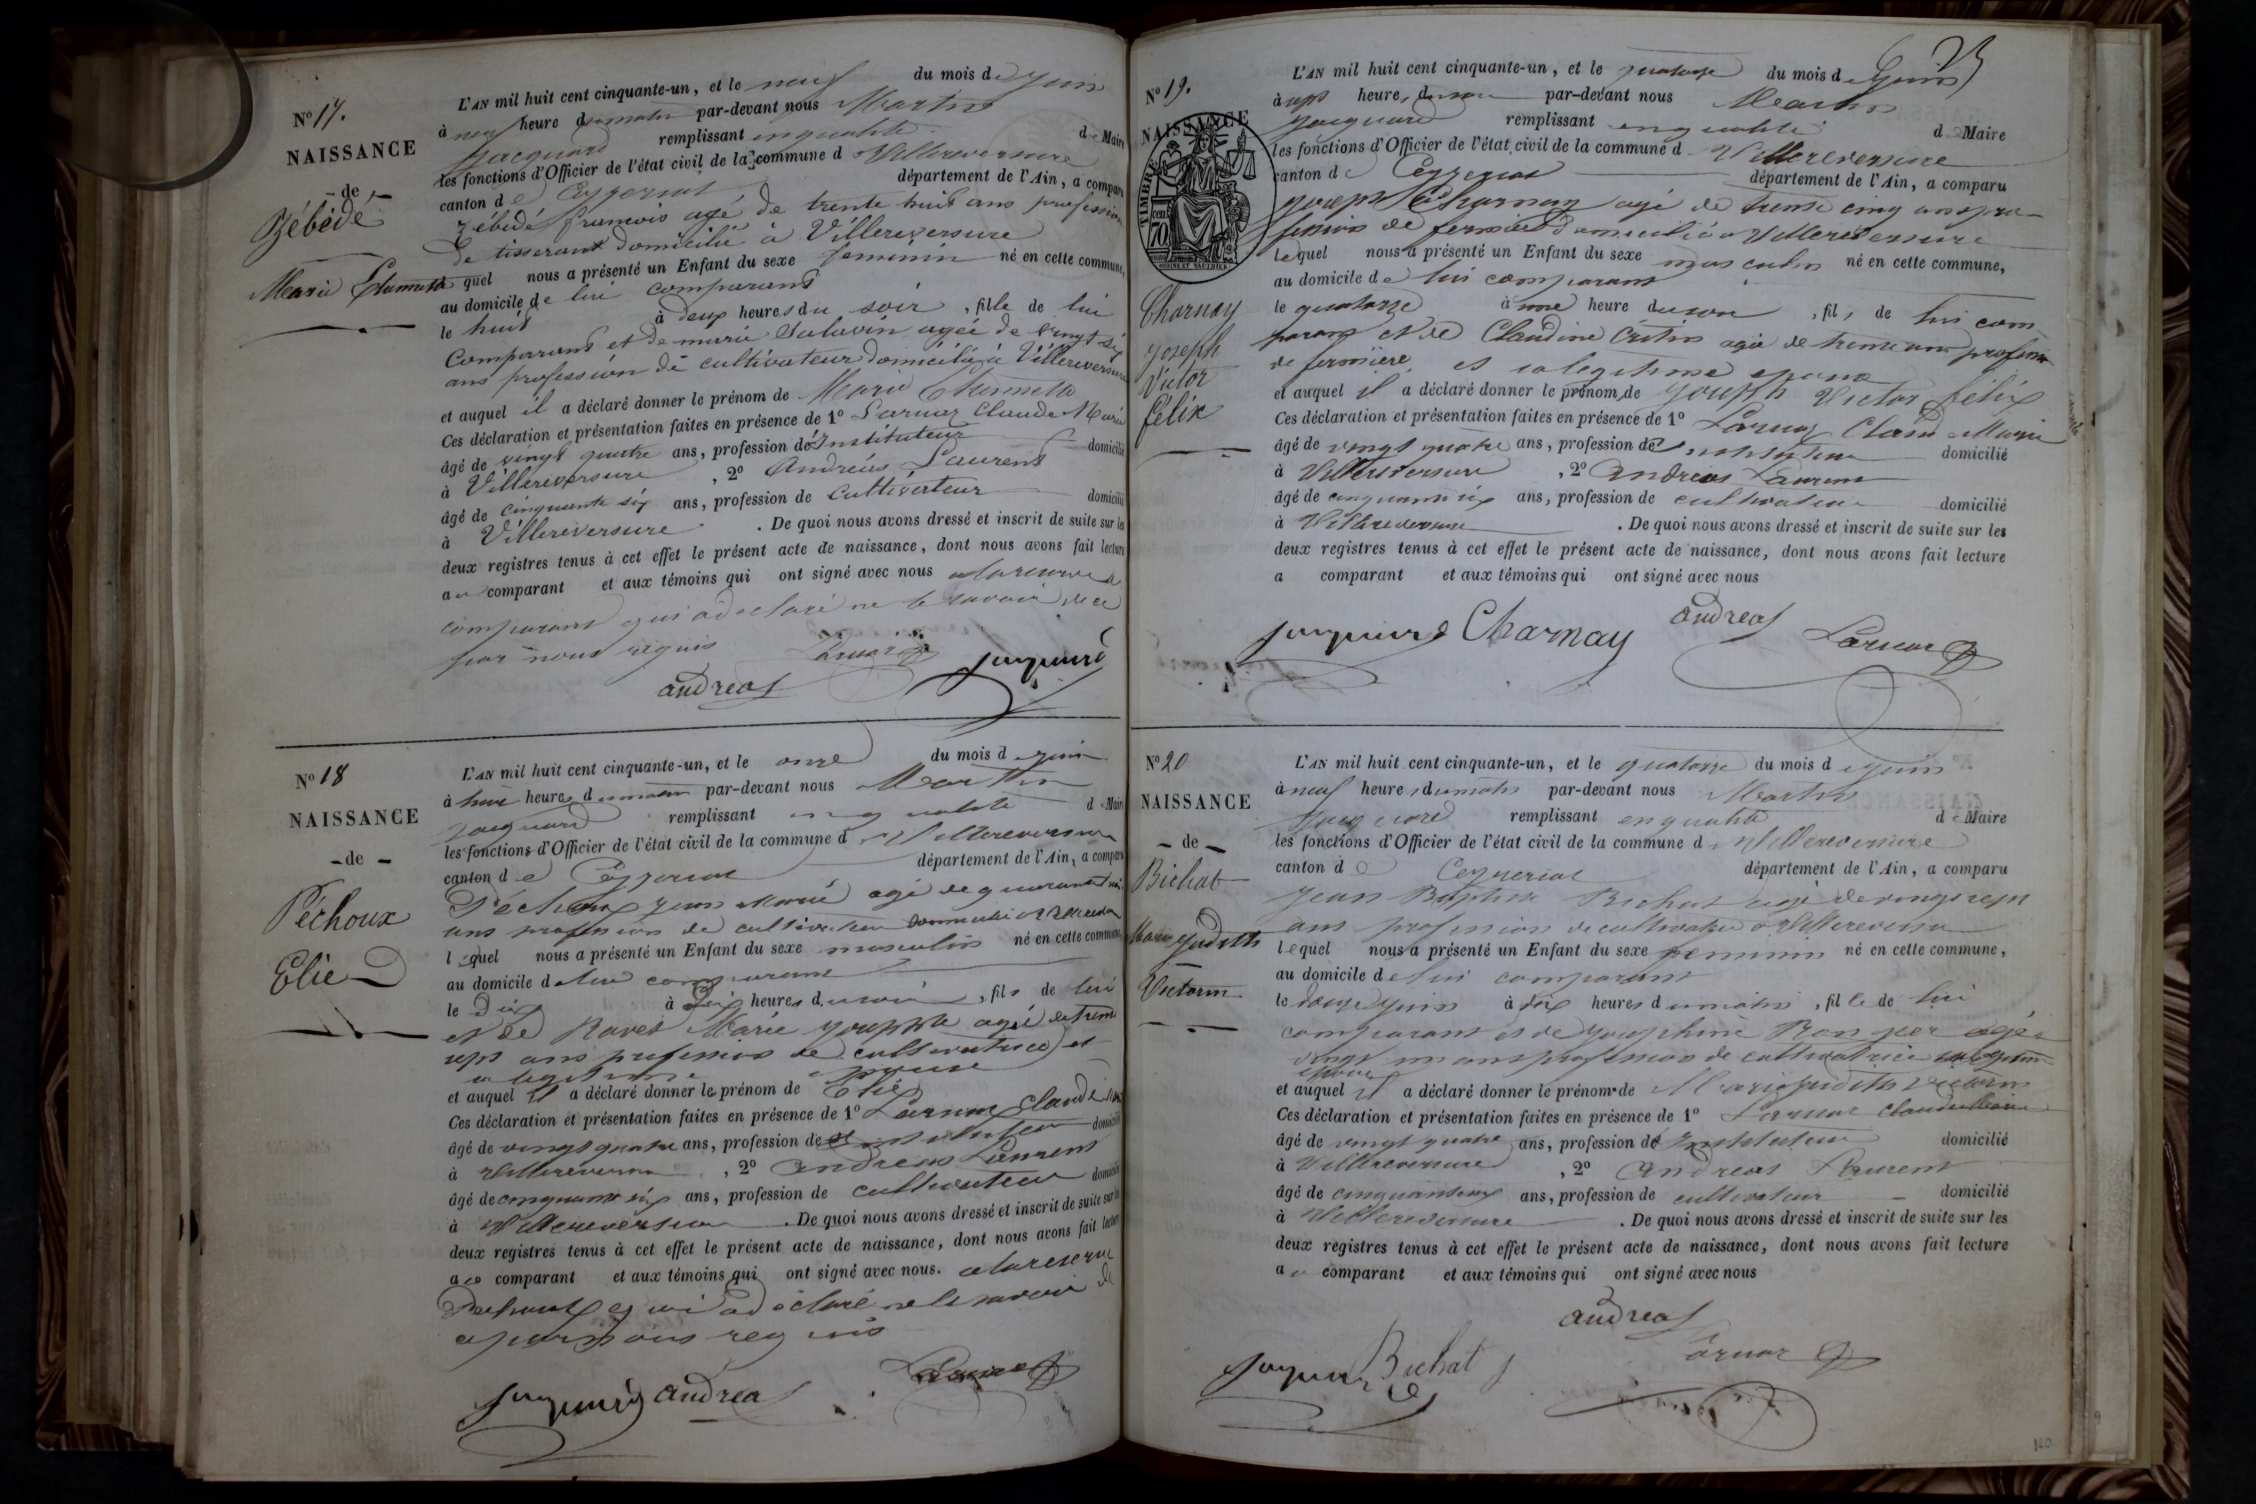 N° 17.
NAISSANCE
- de -
Zébédé
Marie
L'AN mil huit cent cinquante-un, et le neuf du mois de juin
à neuf heure du matin par-devant nous Martin
Jacquard remplissant en qualité de Maire
les fonctions d'Officier de l'état civil de la commune de Villereversure
canton de Ceyzeriat département de l'Ain, a comparu
Zébédé françois agé de trente huit ans profession
de tisserant domicilié à Villereversure
lequel nous a présenté un Enfant du sexe féminin né en cette commune,
au domicile de lui comparant
le huit à deux heures du soir, fille de lui
Comparant et de marie agée de vingt six
ans profession de cultivateur domiciliée à Villereversure
et auquel il a déclaré donner le prénom de Marie
Ces déclaration et présentation faites en présence de 1° Larnaz Claude Marie
âgé de vingt quatre ans, profession d'Instituteur domicilié
à Villereversure, 2° Andréas Laurent
âgé de cinquante six ans, profession de cultivateur domicilié
à Villereversure. De quoi nous avons dressé et inscrit de suite sur les
deux registres tenus à cet effet le présent acte de naissance, dont nous avons fait lecture
au comparant et aux témoins qui ont signé avec nous a la reserve du
comparant qui a declaré ne le savoir de ce
par nous requis
Larnaz Jacquard
andreas
N° 18
NAISSANCE
- de -
Péchoux
Elie
L'AN mil huit cent cinquante-un, et le onze du mois de juin
à huit heures du matin par-devant nous Martin
Jacquard remplissant en qualité de Maire
les fonctions d'Officier de l'état civil de la commune de Villereversure
canton de Ceyzeriat département de l'Ain, a comparu
Péchoux jean Marie agé de quarante
ans profession de cultivateur domicilié a Villereversure
lequel nous a présenté un Enfant du sexe masculin né en cette commune,
au domicile de lui comparant
le dix à six heures du soir, fils de lui
et de Ravet Marie josephte agée de trente
sept ans profession de cultivatrice et
sa legitime epouse
et auquel il a déclaré donner le prénom de Elie
Ces déclaration et présentation faites en présence de 1° Larnaz Claude Marie
âgé de vingt quatre ans, profession de instituteur domicilié
à Villereversure, 2° Andreas Laurent
âgé de cinquante six ans, profession de cultivateur domicilié
à Villereversure. De quoi nous avons dressé et inscrit de suite sur les
deux registres tenus à cet effet le présent acte de naissance, dont nous avons fait lecture
au comparant et aux témoins qui ont signé avec nous. a la reserve
Pechoux qui a déclaré ne le savoir de
ce par nous requis
Jacquard andreas Larnaz
25
N° 19.
NAISSANCE
TIMBRE
70
Charnay
Joseph
Victor
félix
L'AN mil huit cent cinquante-un, et le quatorze du mois de juin
à sept heure, du soir par-devant nous Martin
Jacquard remplissant en qualité de Maire
les fonctions d'Officier de l'état civil de la commune d Villereversure
canton de Ceyzeriat département de l'Ain, a comparu
joseph Charnay agé de trente cinq ans pro-
fession de fermier domicilié a Villereversure
lequel nous a présenté un Enfant du sexe masculin né en cette commune,
au domicile de lui comparant
le quatorze à une heure du soir, fils de lui com
parant et de Claudine Critin agée de trente ans profession
de fermière et sa legitime epouse
et auquel il a déclaré donner le prénom de joseph Victor félix
Ces déclaration et présentation faites en présence de 1° Larnaz Claude Marie
âgé de vingt quatre ans, profession de instituteur domicilié
à Villereversure, 2° Andreas Laurent
âgé de cinquante six ans, profession de cultivateur domicilié
à Villereversure. De quoi nous avons dressé et inscrit de suite sur les
deux registres tenus à cet effet le présent acte de naissance, dont nous avons fait lecture
a comparant et aux témoins qui ont signé avec nous
Jacquard Charnay andreas Larnaz
N° 20
NAISSANCE
- de -
Bichat
Marie Judith
Victorin
L'AN mil huit cent cinquante-un, et le quatorze du mois de juin
à neuf heure, du matin par-devant nous Martin
Jacquard remplissant en qualité de Maire
les fonctions d'Officier de l'état civil de la commune de Villereversure
canton de Ceyzeriat département de l'Ain, a comparu
Jean Baptiste Bichat agé de vingt sept
ans profession de cultivateur a Villereversure
lequel nous a présenté un Enfant du sexe feminin né en cette commune,
au domicile de lui comparant
le douze juin à dix heures du matin, fille de lui
comparant et de josephine agée
vingt un ans profession de cultivatrice
epouse
et auquel il a déclaré donner le prénom de Marie judith victorin
Ces déclaration et présentation faites en présence de 1° Larnaz Claude Marie
âgé de vingt quatre ans, profession de Instituteur domicilié
à Villereversure, 2° Andreas Laurent
âgé de cinquante six ans, profession de cultivateur domicilié
à Villereversure. De quoi nous avons dressé et inscrit de suite sur les
deux registres tenus à cet effet le présent acte de naissance, dont nous avons fait lecture
au comparant et aux témoins qui ont signé avec nous
andreas
Jacquard Bichat Larnaz
120